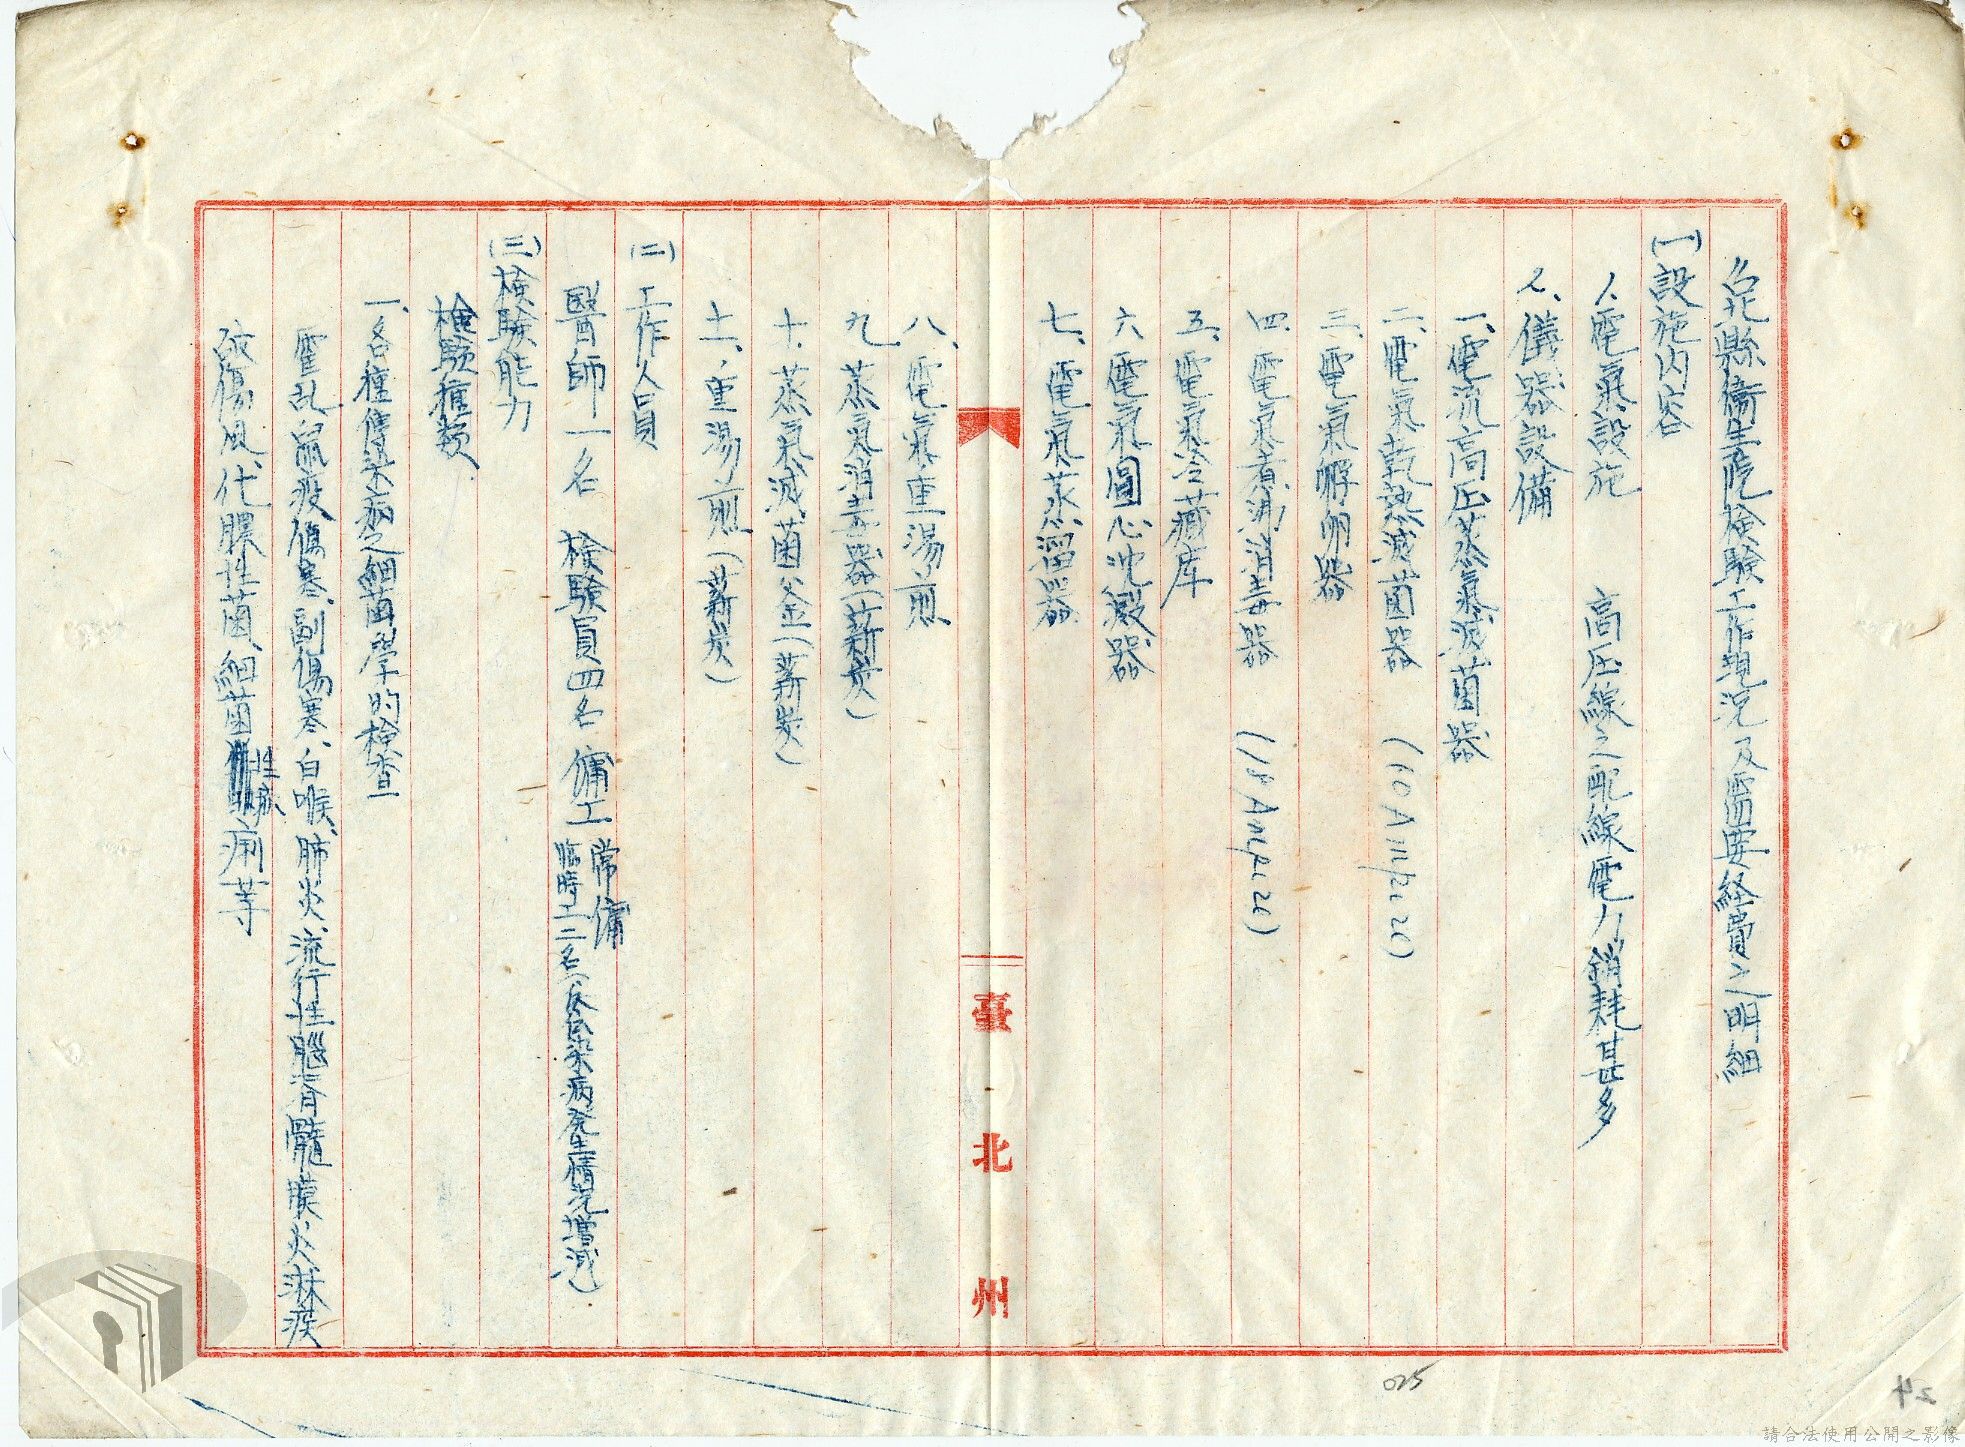 台北縣衛生院検驗工作現況及需要経費之明細
(一)設施内容
1、電氣設施 高压線之配線電力銷耗甚多
2、儀器設備
一、電流高压蒸氣滅菌器
二、電氣乾熱滅菌器 (60 Ampere)
三、電氣孵卵器
四、電氣煮沸消毒器 (18 Ampere)
五、電氣冷藏库
六、電氣圓心沈澱器
七、電氣蒸溜器
臺北州
八、電氣重湯煎
九、蒸氣消毒器(薪炭)
十、蒸氣滅菌釜(薪炭)
十一、重湯煎(薪炭)
(二)工作人員
醫師一名 検驗員四名 傭工 常傭
臨時工二名(依傳染病発生情況增減)
(三)検驗能力
検驗種類
一、各種傳染病之細菌學的検查
霍乱、鼠疫、傷寒、副傷寒、白喉、肺炎、流行性腦脊髓膜炎、淋疾
破傷風、化膿性菌、細菌性赤痢等
025
24
請合法使用公開之影像